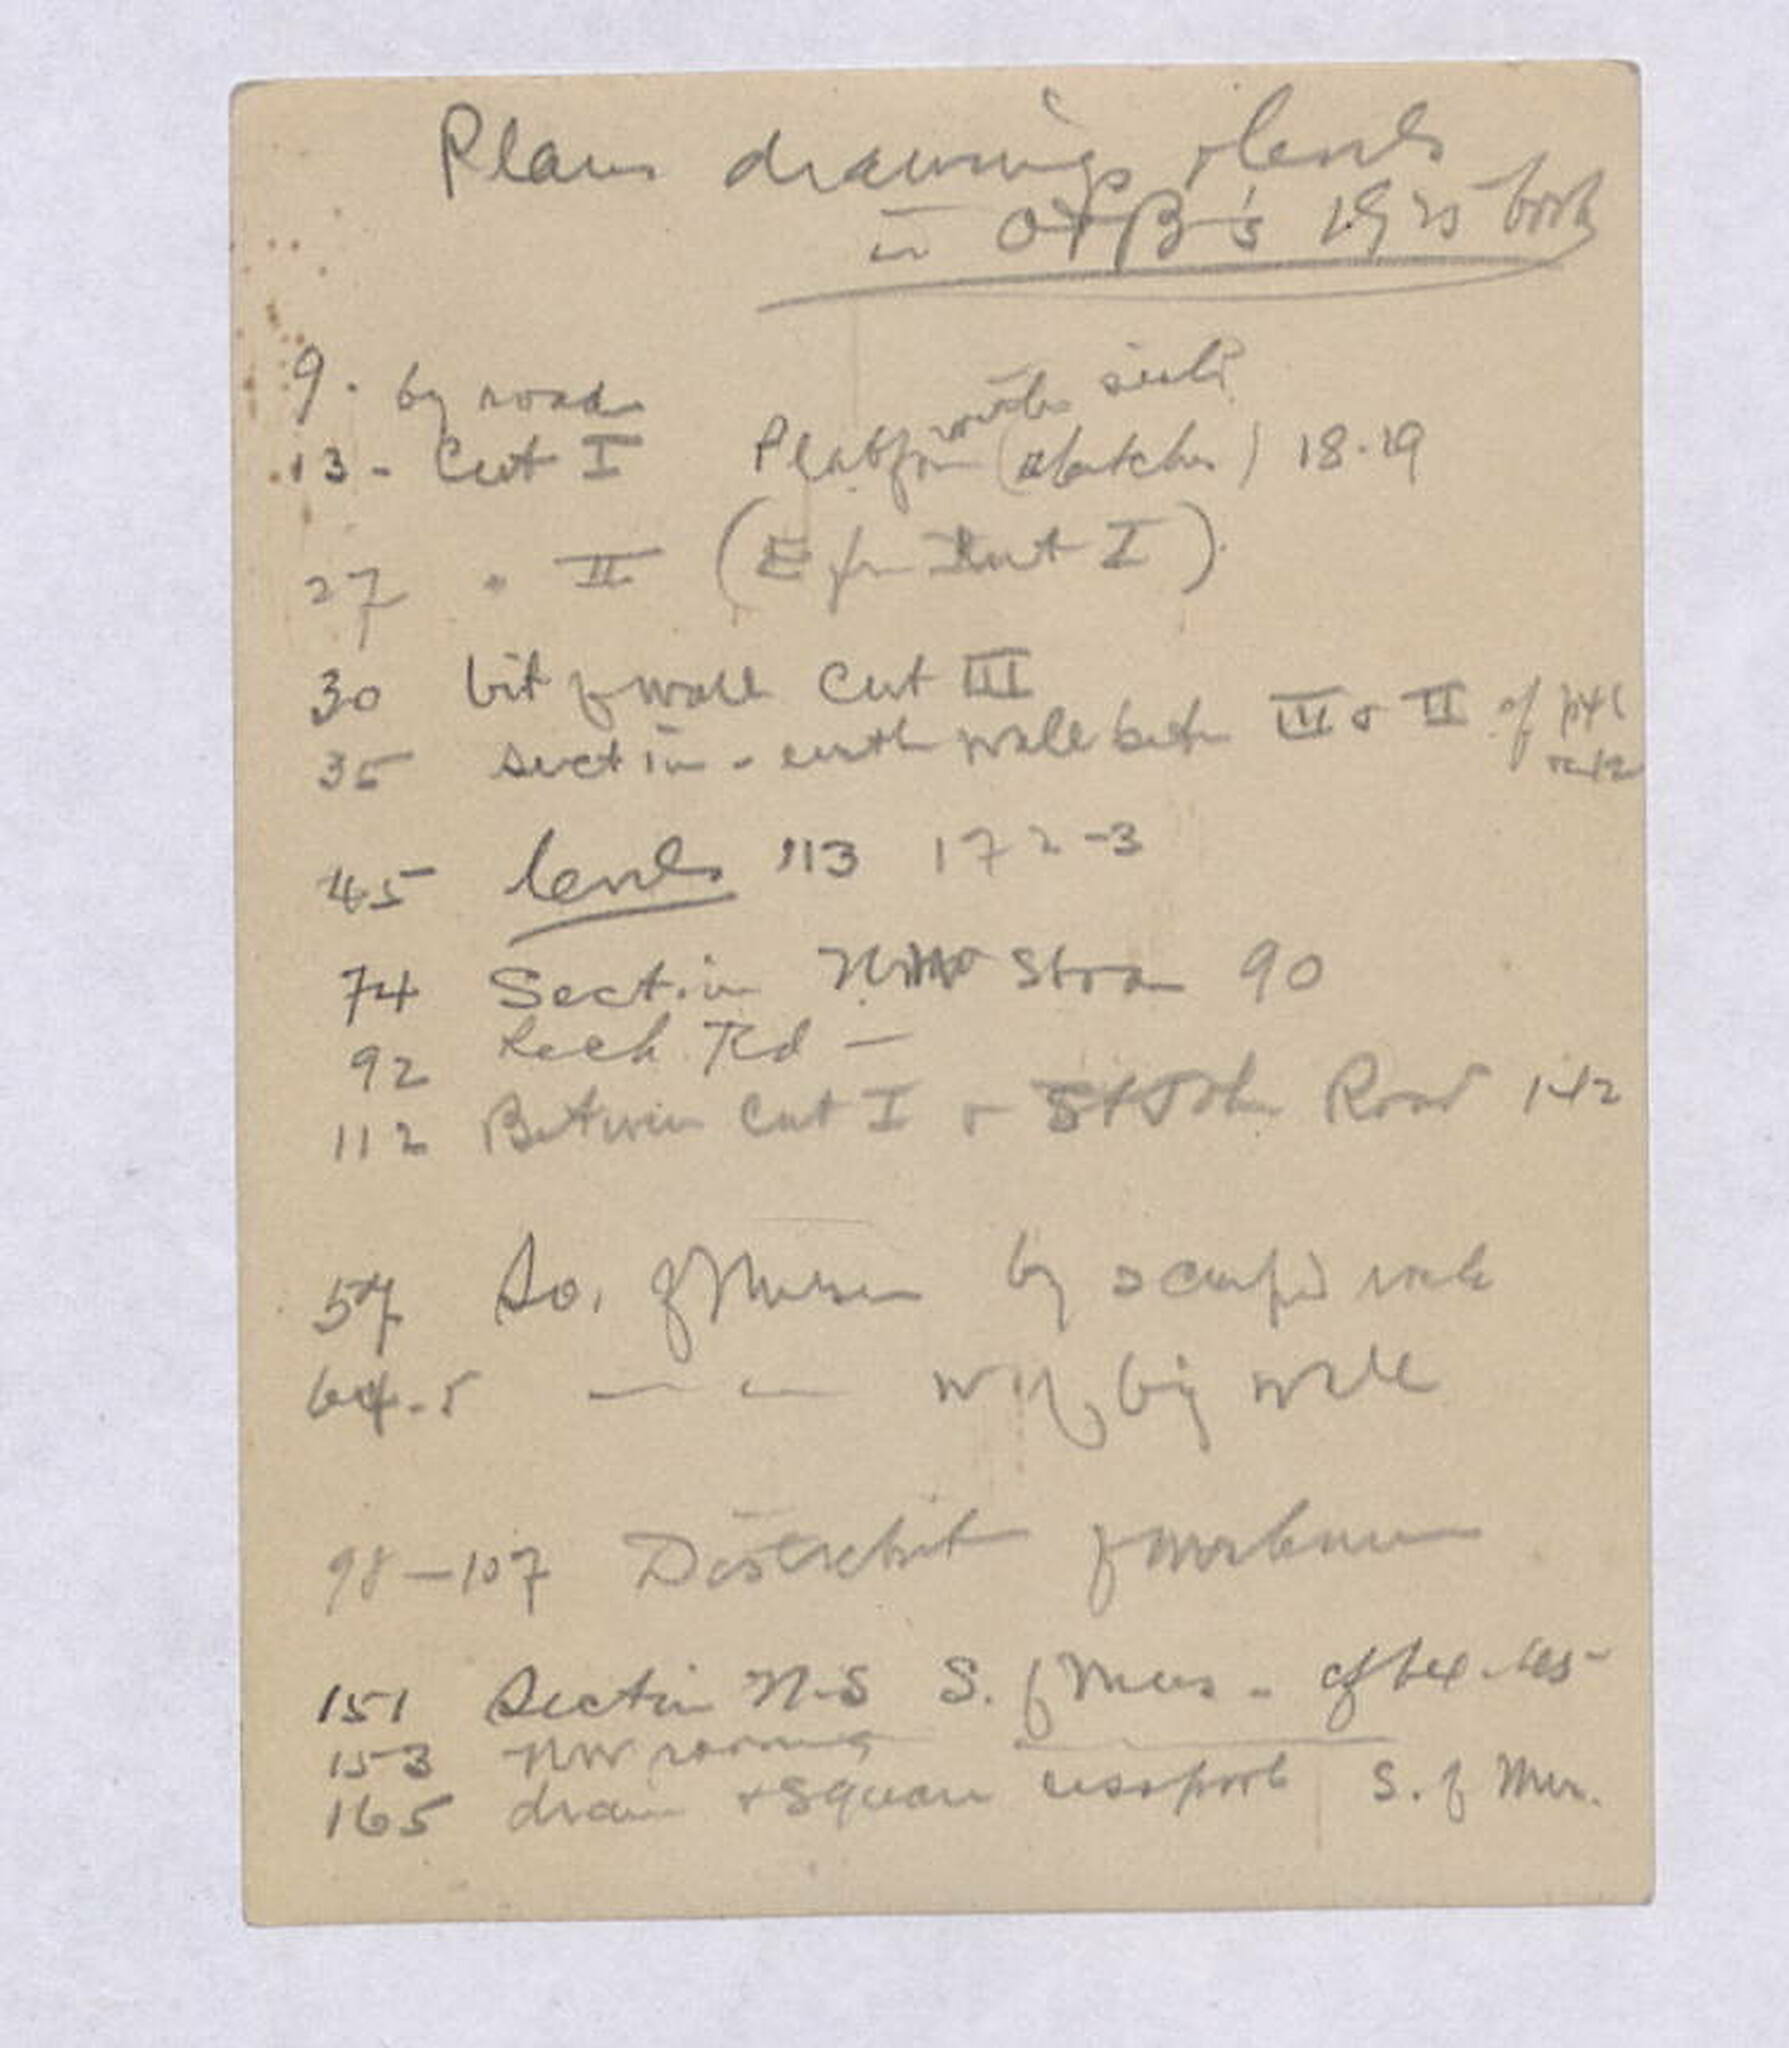 Plans drawings & levels
in OTB's 1925 book
9. by road
13 - Cut I Platform (sketches) 18-19
27 " II (E from Cut I)
30 bit of wall Cut III
35 section - earth wall betw III & II cf
45 levels 113 172-3
74 Section NW Stoa 90
92 Lech Rd -
112 Between Cut I & St John Road 142
57 So. of Museum by scarped rock
64-5 — — W of big wall
98-107 of workmen
151 Section N-S S. of Mus. - cf 64-65
153 NW rooms
165 drain & square cesspool S. of Mus.